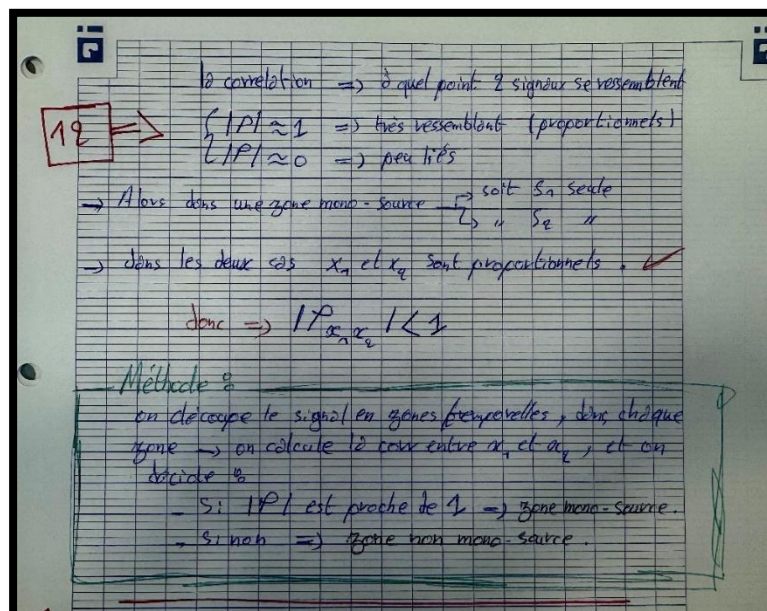 la correlation => à quel point 2 signaux se ressemblent
12 => |P| ≈ 1 => très ressemblant (proportionnels)
|P| ≈ 0 => peu liés
→ Alors dans une zone mono-source → soit S1 seule
→ " S2 "
→ dans les deux cas x1 et x2 sont proportionnels. ✓
donc => |P x1 x2| < 1
Méthode :
on découpe le signal en zones temporelles, dans chaque
zone → on calcule la corr entre x1 et x2, et on
décide :
- Si |P| est proche de 1 => zone mono-source.
- Sinon => zone non mono-source.